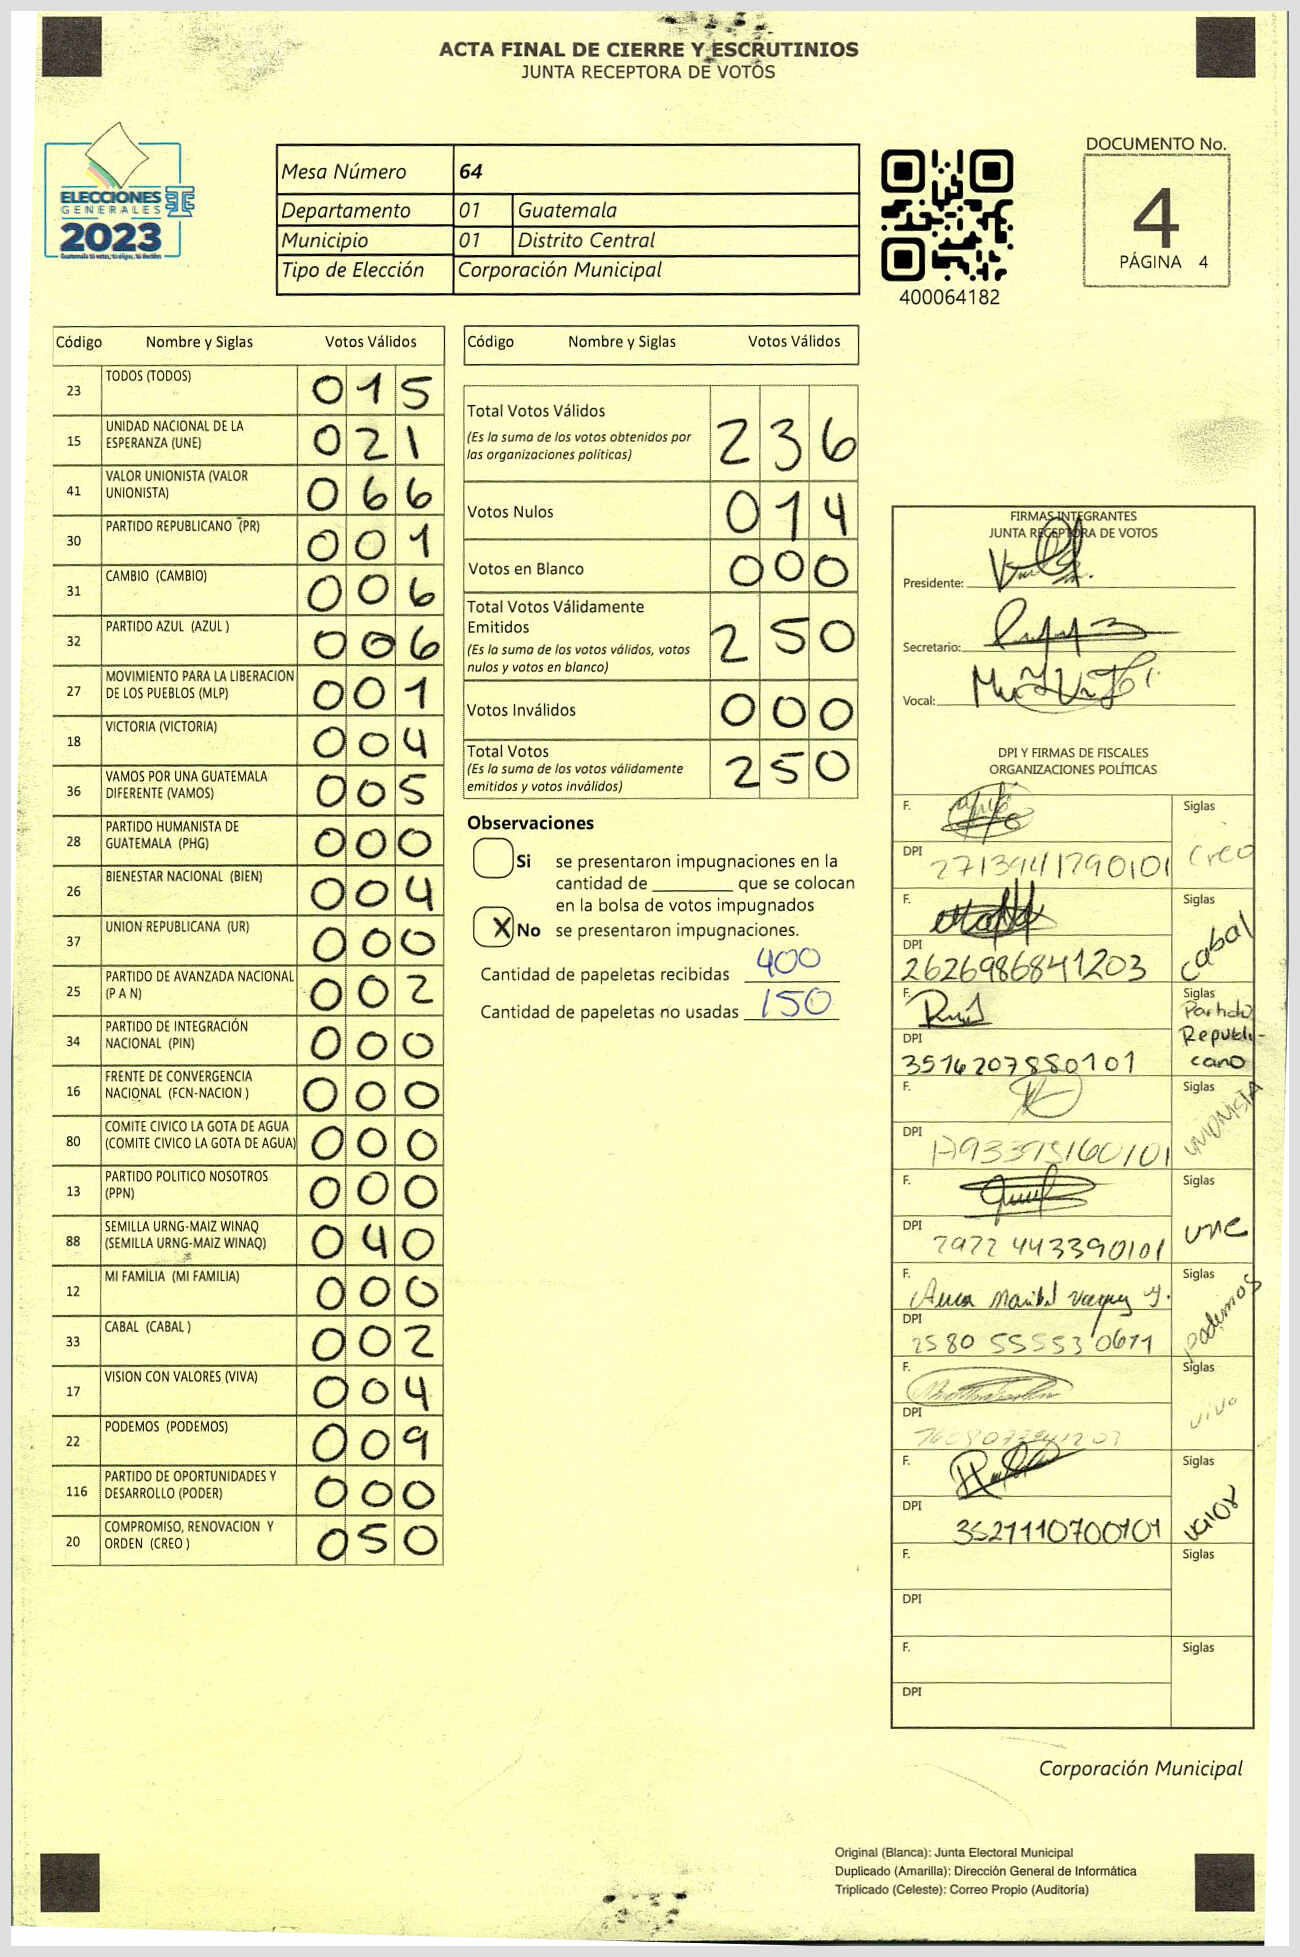 ACTA FINAL DE CIERRE Y ESCRUTINIOS
JUNTA RECEPTORA DE VOTOS
ELECCIONES
GENERALES
2023
Mesa Número 64
Departamento 01 Guatemala
Municipio 01 Distrito Central
Tipo de Elección Corporación Municipal
400064182
DOCUMENTO No.
4
PÁGINA 4
Código Nombre y Siglas Votos Válidos
23 TODOS (TODOS) 015
15 UNIDAD NACIONAL DE LA ESPERANZA (UNE) 021
41 VALOR UNIONISTA (VALOR UNIONISTA) 066
30 PARTIDO REPUBLICANO (PR) 001
31 CAMBIO (CAMBIO) 006
32 PARTIDO AZUL (AZUL ) 006
27 MOVIMIENTO PARA LA LIBERACION DE LOS PUEBLOS (MLP) 001
18 VICTORIA (VICTORIA) 004
36 VAMOS POR UNA GUATEMALA DIFERENTE (VAMOS) 005
28 PARTIDO HUMANISTA DE GUATEMALA (PHG) 000
26 BIENESTAR NACIONAL (BIEN) 004
37 UNION REPUBLICANA (UR) 000
25 PARTIDO DE AVANZADA NACIONAL (P A N) 002
34 PARTIDO DE INTEGRACIÓN NACIONAL (PIN) 000
16 FRENTE DE CONVERGENCIA NACIONAL (FCN-NACION ) 000
80 COMITE CIVICO LA GOTA DE AGUA (COMITE CIVICO LA GOTA DE AGUA) 000
13 PARTIDO POLITICO NOSOTROS (PPN) 000
88 SEMILLA URNG-MAIZ WINAQ (SEMILLA URNG-MAIZ WINAQ) 040
12 MI FAMILIA (MI FAMILIA) 000
33 CABAL (CABAL ) 002
17 VISION CON VALORES (VIVA) 004
22 PODEMOS (PODEMOS) 009
116 PARTIDO DE OPORTUNIDADES Y DESARROLLO (PODER) 000
20 COMPROMISO, RENOVACION Y ORDEN (CREO ) 050
Código Nombre y Siglas Votos Válidos
Total Votos Válidos 236
(Es la suma de los votos obtenidos por
las organizaciones políticas)
Votos Nulos 014
Votos en Blanco 000
Total Votos Válidamente
Emitidos 250
(Es la suma de los votos válidos, votos
nulos y votos en blanco)
Votos Inválidos 000
Total Votos 250
(Es la suma de los votos válidamente
emitidos y votos inválidos)
Observaciones
Si se presentaron impugnaciones en la
cantidad de ________ que se colocan
en la bolsa de votos impugnados
X No se presentaron impugnaciones.
Cantidad de papeletas recibidas 400
Cantidad de papeletas no usadas 150
FIRMAS INTEGRANTES
JUNTA RECEPTORA DE VOTOS
Presidente:
Secretario:
Vocal:
DPI Y FIRMAS DE FISCALES
ORGANIZACIONES POLÍTICAS
F. Siglas
DPI 2713941790101 Creo
F. Siglas
DPI 2626986841203 Cabal
F. Siglas Partido
Republi-
cano
DPI 3516207880101
F. Siglas
DPI UNIONISTA
F. Siglas
DPI 2922 443390101 une
F. Siglas
DPI 2580 55553 0611 podemos
F. Siglas
DPI viva
F. Siglas
DPI 3521110700101 valor
F. Siglas
DPI
F. Siglas
DPI
Corporación Municipal
Original (Blanca): Junta Electoral Municipal
Duplicado (Amarilla): Dirección General de Informática
Triplicado (Celeste): Correo Propio (Auditoría)